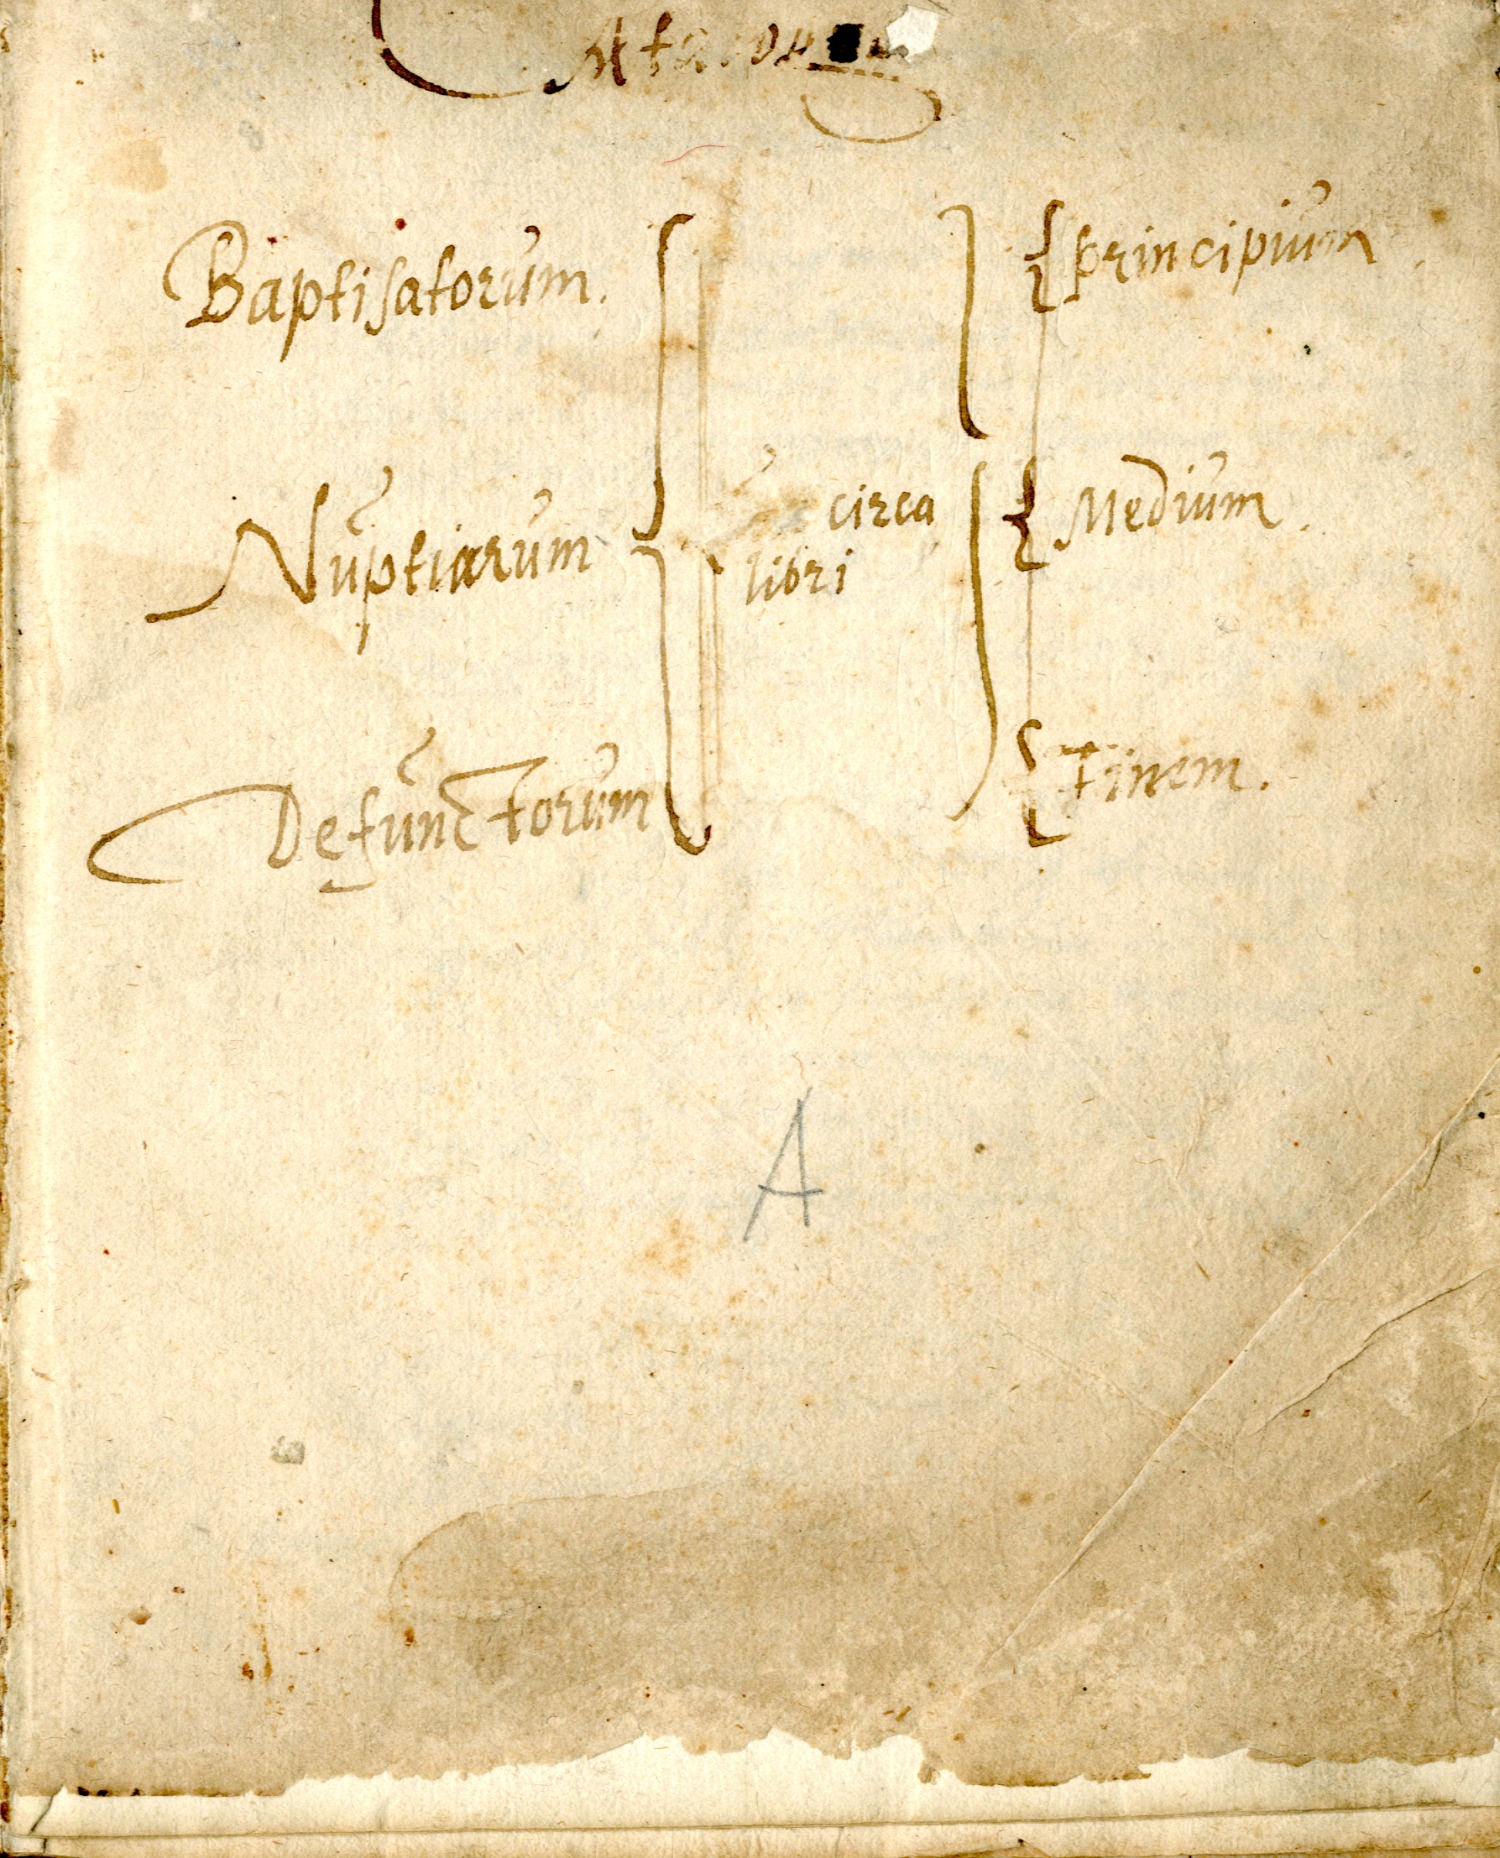 Baptisatorum.
principium
Nuptiarum
circa
libri
Medium.
Defunctorum
Finem.
A